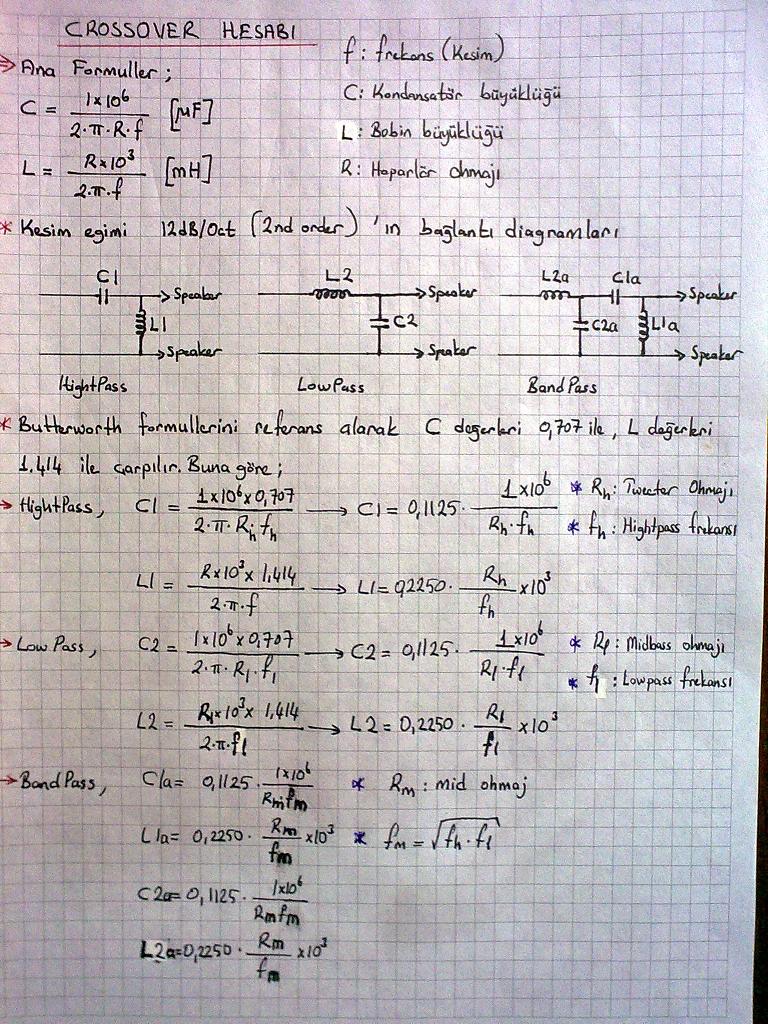 CROSSOVER HESABI
f: frekans (Kesim)
⇒ Ana Formuller ;
C: Kondensatör büyüklüğü
C = 1x10⁶ / 2·π·R·f [µF]
L: Bobin büyüklüğü
L = Rx10³ / 2·π·f [mH]
R: Hoparlör ohmajı
* Kesim egimi 12dB/Oct (2nd order) 'ın bağlantı diagramları
C1 → Speaker
L1
→ Speaker
HightPass
L2 → Speaker
C2
→ Speaker
LowPass
L2a C1a → Speaker
C2a L1a
→ Speaker
BandPass
* Butterworth formullerini referans alarak C değerleri 0,707 ile, L değerleri
1.414 ile çarpılır. Buna göre ;
→ HightPass, C1 = 1x10⁶x0,707 / 2·π·Rh·fh → C1 = 0,1125 · 1x10⁶ / Rh·fh * Rh: Tweeter Ohmajı
* fh : Hightpass frekansı
L1 = Rx10³x 1,414 / 2·π·f → L1 = 0,2250 · Rh / fh x10³
→ Low Pass, C2 = 1x10⁶x0,707 / 2·π·Rl·fl → C2 = 0,1125 · 1x10⁶ / Rl·fl * Rl : Midbass ohmajı
* fl : Lowpass frekansı
L2 = Rlx10³x 1,414 / 2·π·fl → L2 = 0,2250 · Rl / fl x10³
→ BandPass, C1a = 0,1125 · 1x10⁶ / Rm·fm * Rm : mid ohmaj
L1a = 0,2250 · Rm / fm x10³ * fm = √fh · fl
C2a = 0,1125 · 1x10⁶ / Rm fm
L2a = 0,2250 · Rm / fm x10³